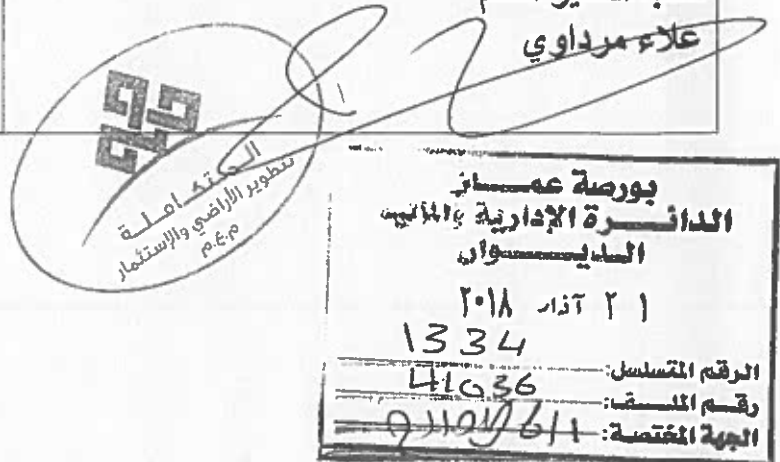 علاء مرداوي
المتكاملة
لتطوير الأراضي والإستثمار
م.ع.م
بورصة عمــــان
الدائــــرة الإدارية والمالية
الديـــــوان
٢١ آذار ٢٠١٨
الرقم المتسلسل: 1334
رقــم الملــف: 41036
الجهة المختصة: